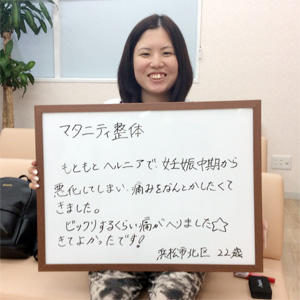 マタニティ整体
もともとヘルニアで、妊娠中期から
悪化してしまい痛みをなんとかしたくて
きました。
ビックリするくらい痛がへりました☆
きてよかったです!
浜松市北区 22歳